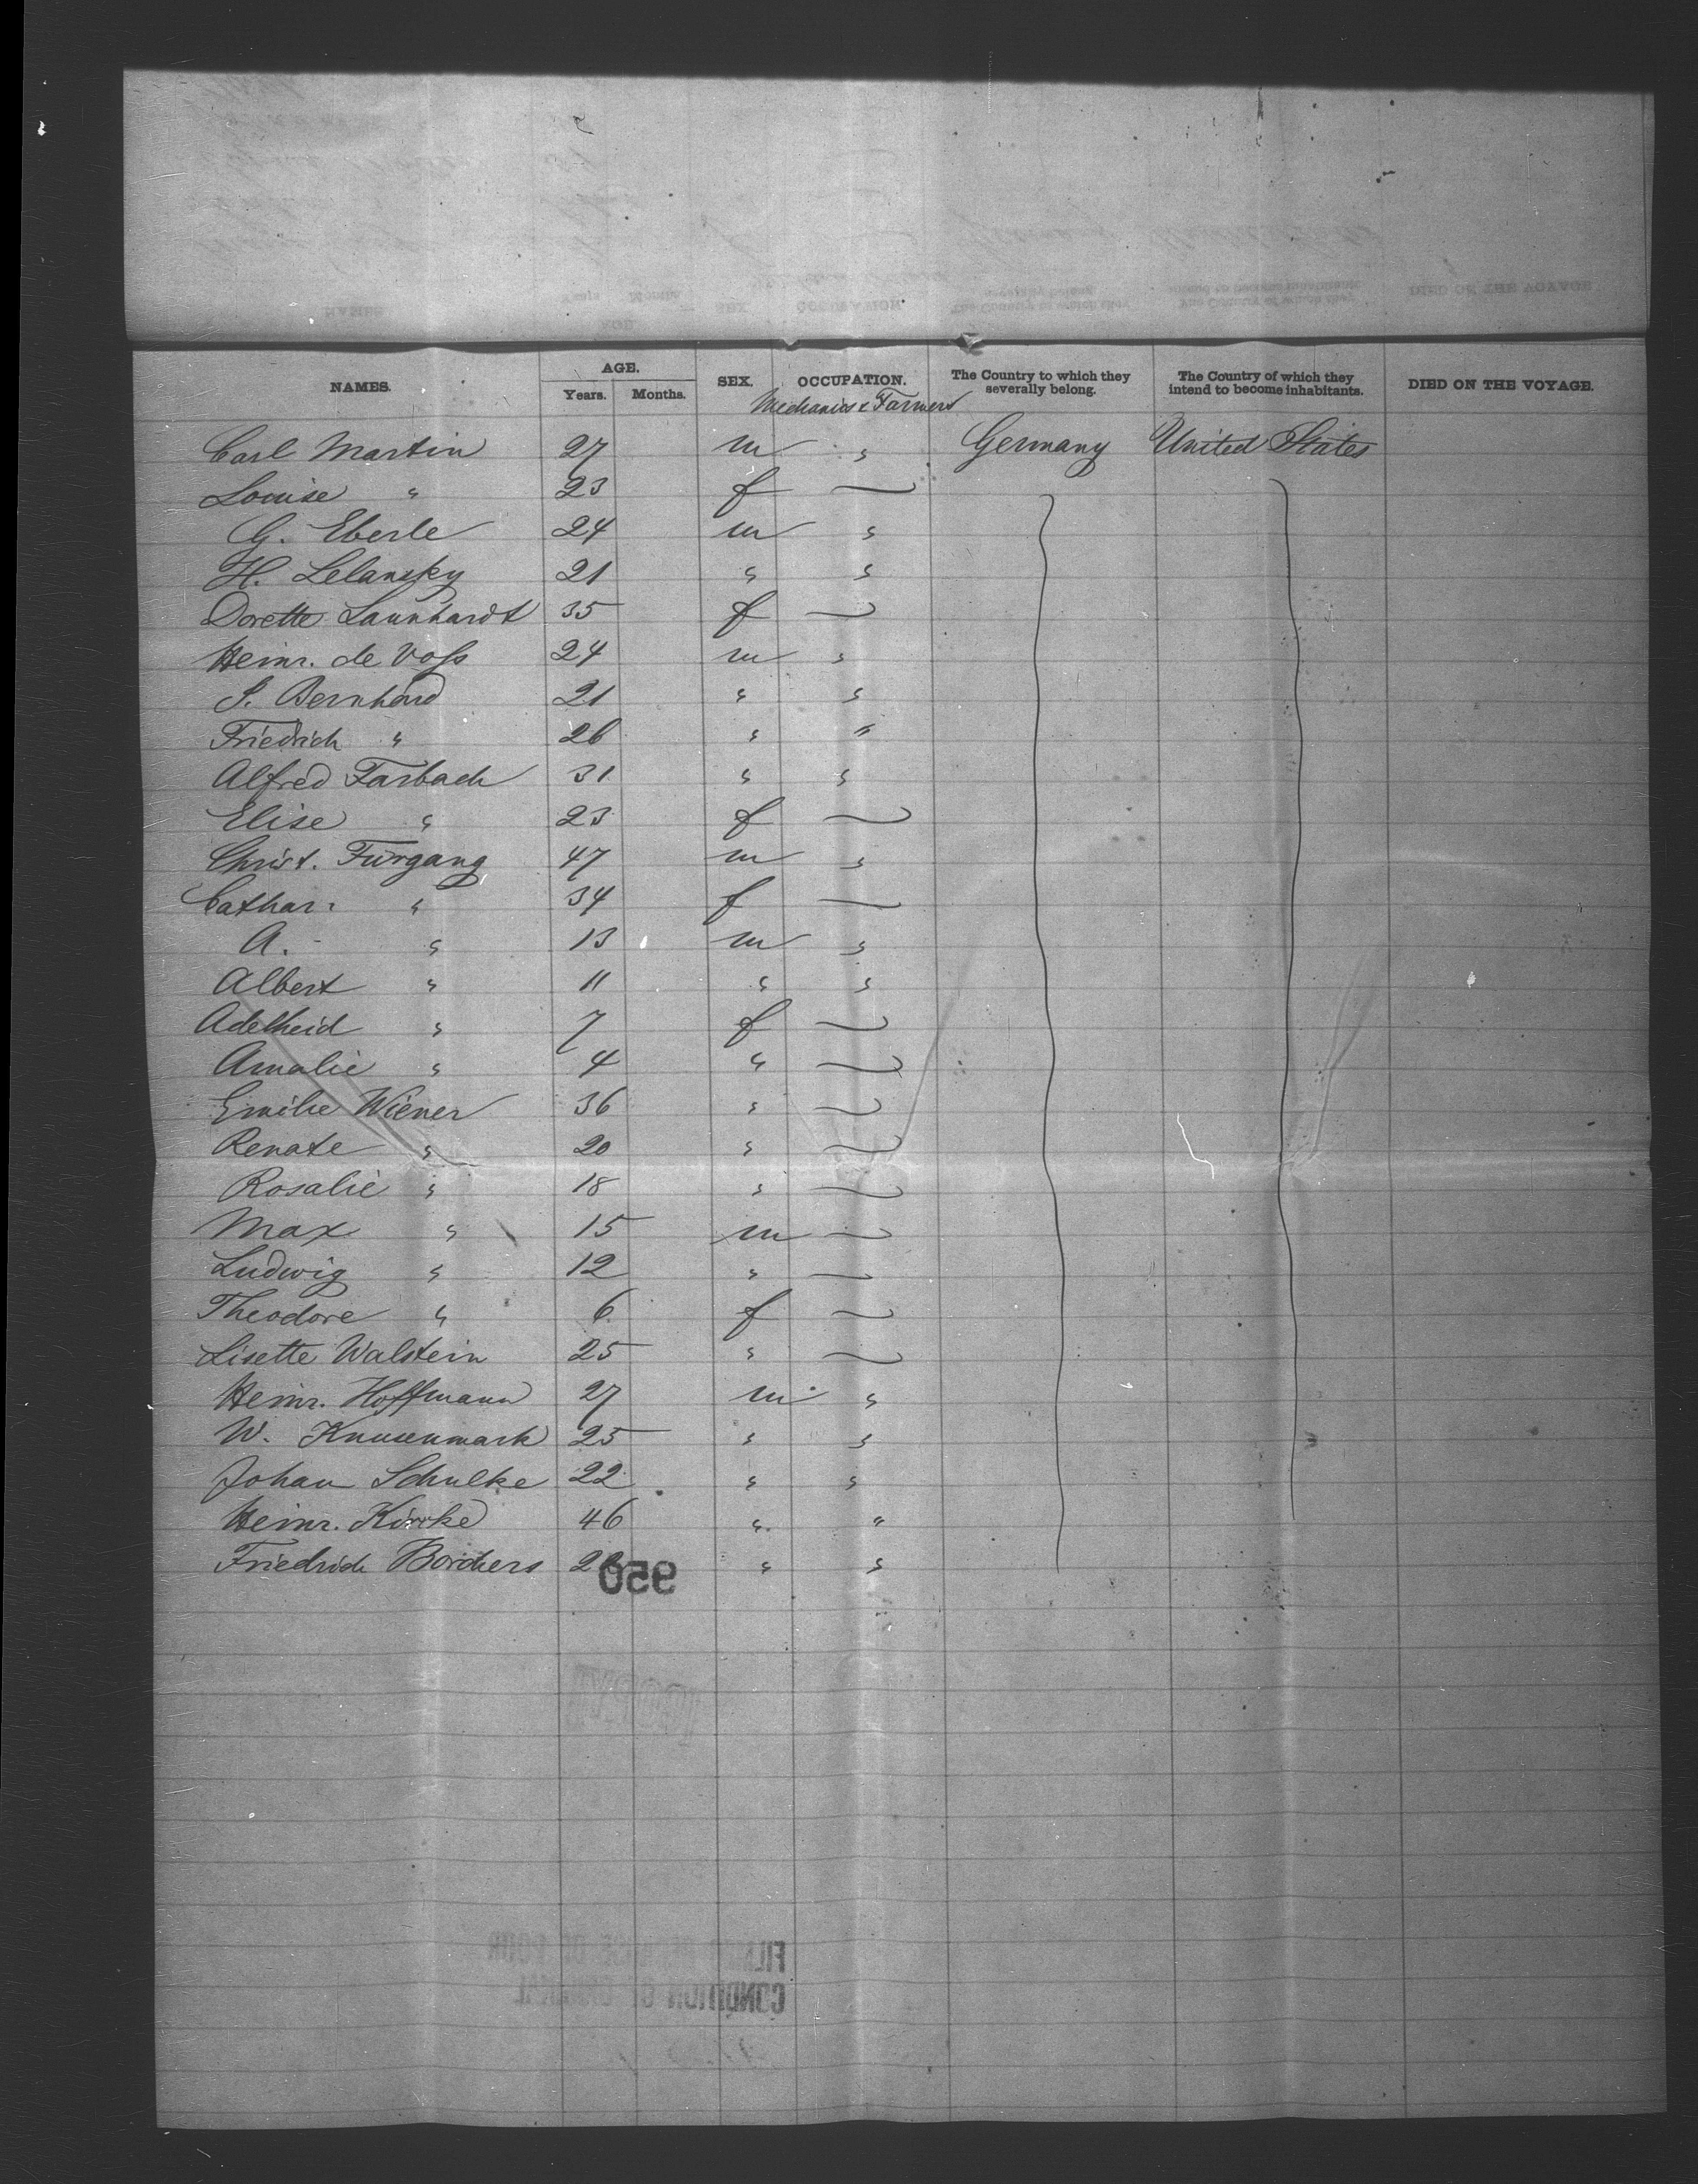 NAMES. AGE. Years. Months. SEX. OCCUPATION. The Country to which they severally belong. The Country of which they intend to become inhabitants. DIED ON THE VOYAGE.
Mechanics & Farmers
Carl Martin 27 m " Germany United States
Louise " 23 f —
G. Eberle 24 m "
H. Lelansky 21 " "
Dorette Launhardt 35 f —
Heinr. de Voss 24 m "
J. Bernhard 21 " "
Friedrich " 26 " "
Alfred Farbach 31 " "
Elise " 23 f —
Christ. Furgang 47 m "
Cathar. " 34 f —
A. " 13 m "
Albert " 11 " "
Adelheid " 7 f —
Amalie " 4 " —
Emilie Wiener 36 " —
Renate " 20 " —
Rosalie " 18 " —
Max " 15 m —
Ludwig " 12 " —
Theodore " 6 f —
Lisette Walstein 25 " —
Heinr. Hoffmann 27 m "
W. 25 " "
Johan Schulke 22 " "
Heinr. 46 " "
Friedrich Borchers " "
950
FILMED BECAUSE OF POOR
CONDITION OF ORIGINAL